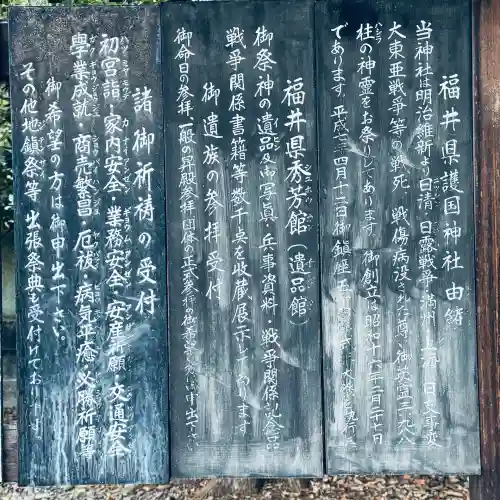 福井県護国神社 由緒
当神社は明治維新より日清・日露戦争 満州 上海 日支事変
大東亜戦争等の戦死 戦傷病没された尊い御英霊
柱の神霊をお祭りしてあります。御創立は昭和十六年
であります。平成 四月十二日御鎮座五
福井県秀芳館（遺品館）
御祭神の遺品及御写真・兵事資料 戦争関係記念品
戦争関係書籍等数千点を収蔵展示しております
御遺族の参拝受付
御命日の参拝、一般の昇殿参拝団体の正式参拝の御希望の方は御申出下さい
諸御祈祷の受付
初宮詣・家内安全・業務安全・安産祈願・交通安全
学業成就・商売敏昌・厄祓・病気平癒・必勝祈願等
御希望の方は御申出下さい。
その他地鎮祭等 出張祭典も受付けております